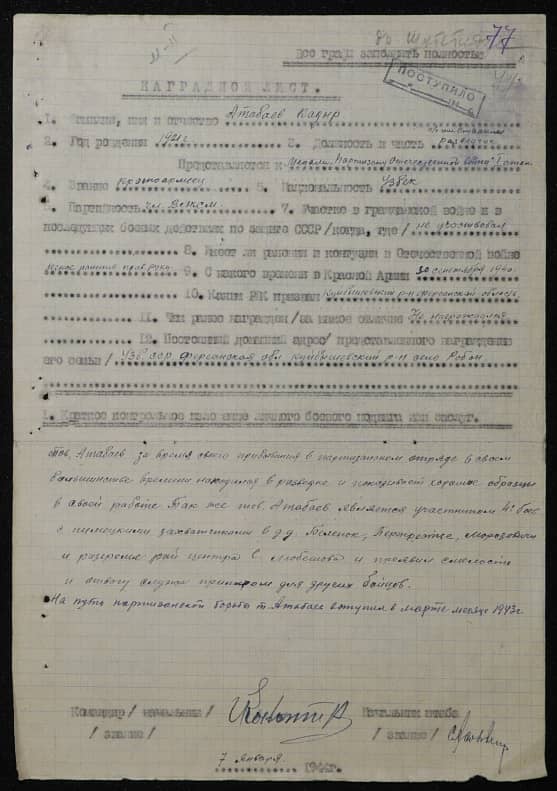 77
Все графы заполнять полностью
ПОСТУПИЛО
НАГРАДНОЙ ЛИСТ.
1. Фамилия, имя и отчество Атабаев Кадыр
2. Год рождения 1921 г 3. Должность и часть
разведчик
Представляется к Медали "Партизану Отечественной войны" I степ
4. Звание Красноармеец 5. Национальность Узбек
6. Партийность чл. ВЛКСМ 7. Участие в гражданской войне и в
последующих боевых действиях по защите СССР /когда, где/ не участвовал
8. Имеет ли ранения и контузии в Отечественной войне
9. С какого времени в Красной Армии 30 сентября 1940 г.
10. Каким РВК призван Куйбышевский р-н Ферганской область
11. Чем ранее награжден /за какое отличие Не награждался
12. Постоянный домашний адрес/ представляемого к награждению
его семьи/ УзССР Ферганская обл Куйбышевский р-н село
1. Краткое конкретное изложение личного боевого подвига или заслуг.
тов. Атабаев за время своего пребывания в партизанском отряде в своем
большинстве времени находился в разведке и показывал хорошие образцы
в своей работе Так же тов. Атабаев является участником 4х боев
с немецкими захватчиками в д.д. Морозовичи
и разгроме рай центра с. Любешова и проявил смелость
и отвагу служа примером для других бойцов.
На путь партизанской борьбы т. Атабаев вступил в марте месяце 1943 г
Командир /начальник/ Начальник штаба
/звание/ /звание/
7 января 1944г.